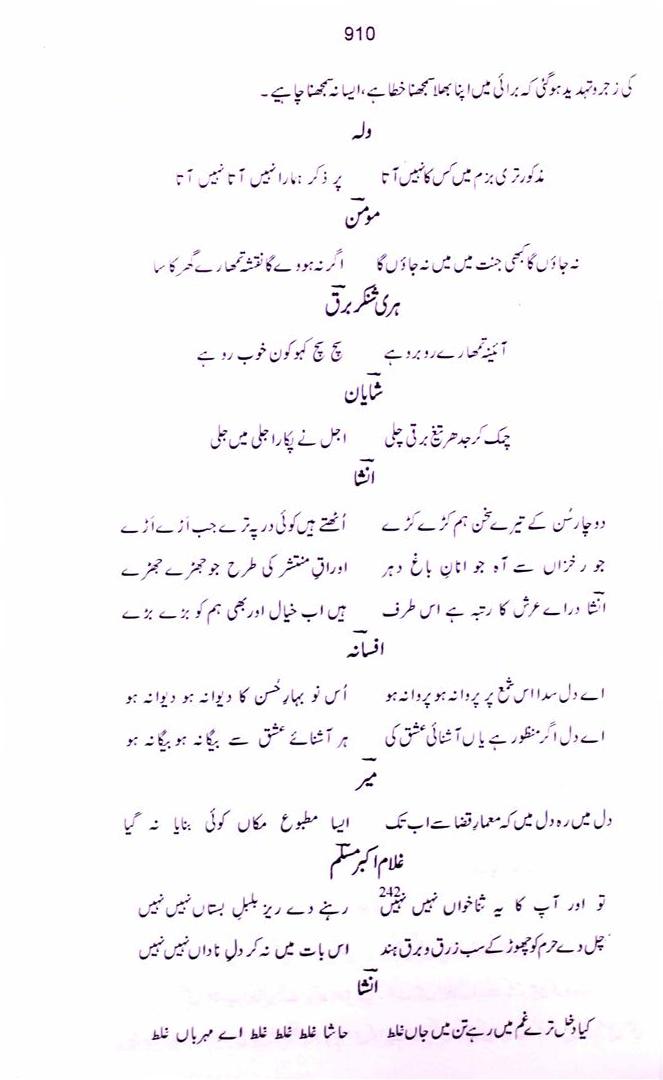 910
کی زجر و تہدید ہوگئی کہ برائی میں اپنا بھلا سمجھنا خطا ہے، ایسا نہ سمجھنا چاہیے۔
ولہ
مذکور تری بزم میں کس کا نہیں آتا پر ذکر ہمارا نہیں آتا نہیں آتا
مومن
نہ جاؤں گا کبھی جنت میں میں نہ جاؤں گا اگر نہ ہووے گا نقشہ تمھارے گھر کا سا
ہری شنکر برق
آئینہ تمھارے روبرو ہے سچ سچ کہو کون خوب رو ہے
شایان
چمک کر جدھر تیغِ برقی چلی اجل نے پکارا جلی میں جلی
انشا
دو چار سُن کے تیرے سخن ہم کڑے کڑے اُٹھتے ہیں کوئی در پہ ترے جب اَڑے اَڑے
جورِ خزاں سے آہ جوانانِ باغِ دہر اوراقِ منتشر کی طرح جو جھڑے جھڑے
انشا وراے عرش کا رتبہ ہے اس طرف ہیں اب خیال اور بھی ہم کو بڑے بڑے
افسانہ
اے دل سدا اس شمع پر پروانہ ہو پروانہ ہو اُس نو بہارِ حُسن کا دیوانہ ہو دیوانہ ہو
اے دل اگر منظور ہے یاں آشنائی عشق کی ہر آشنائے عشق سے بیگانہ ہو بیگانہ ہو
میر
دل میں رہ دل میں کہ معمارِ قضا سے اب تک ایسا مطبوع مکاں کوئی بنایا نہ گیا
غلام اکبر مسلم
تو اور آپ کا یہ ثنا خواں نہیں نہیں 242 رہنے دے ریز بلبلِ بستاں نہیں نہیں
چل دے حرم کو چھوڑ کے سب زرق و برق ہند اس بات میں نہ کر دلِ ناداں نہیں نہیں
انشا
کیا دخل ترے غم میں رہے تن میں جاں غلط حاشا غلط غلط غلط اے مہرباں غلط